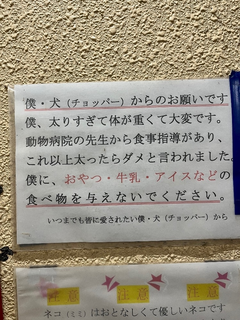 僕・犬（チョッパー）からのお願いです
僕、太りすぎて体が重くて大変です。
動物病院の先生から食事指導があり、
これ以上太ったらダメと言われました。
僕に、おやつ・牛乳・アイスなどの
食べ物を与えないでください。
いつまでも皆に愛されたい僕・犬（チョッパー）から
注意 注意 注意
ネコ（ミミ）はおとなしくて優しいネコです